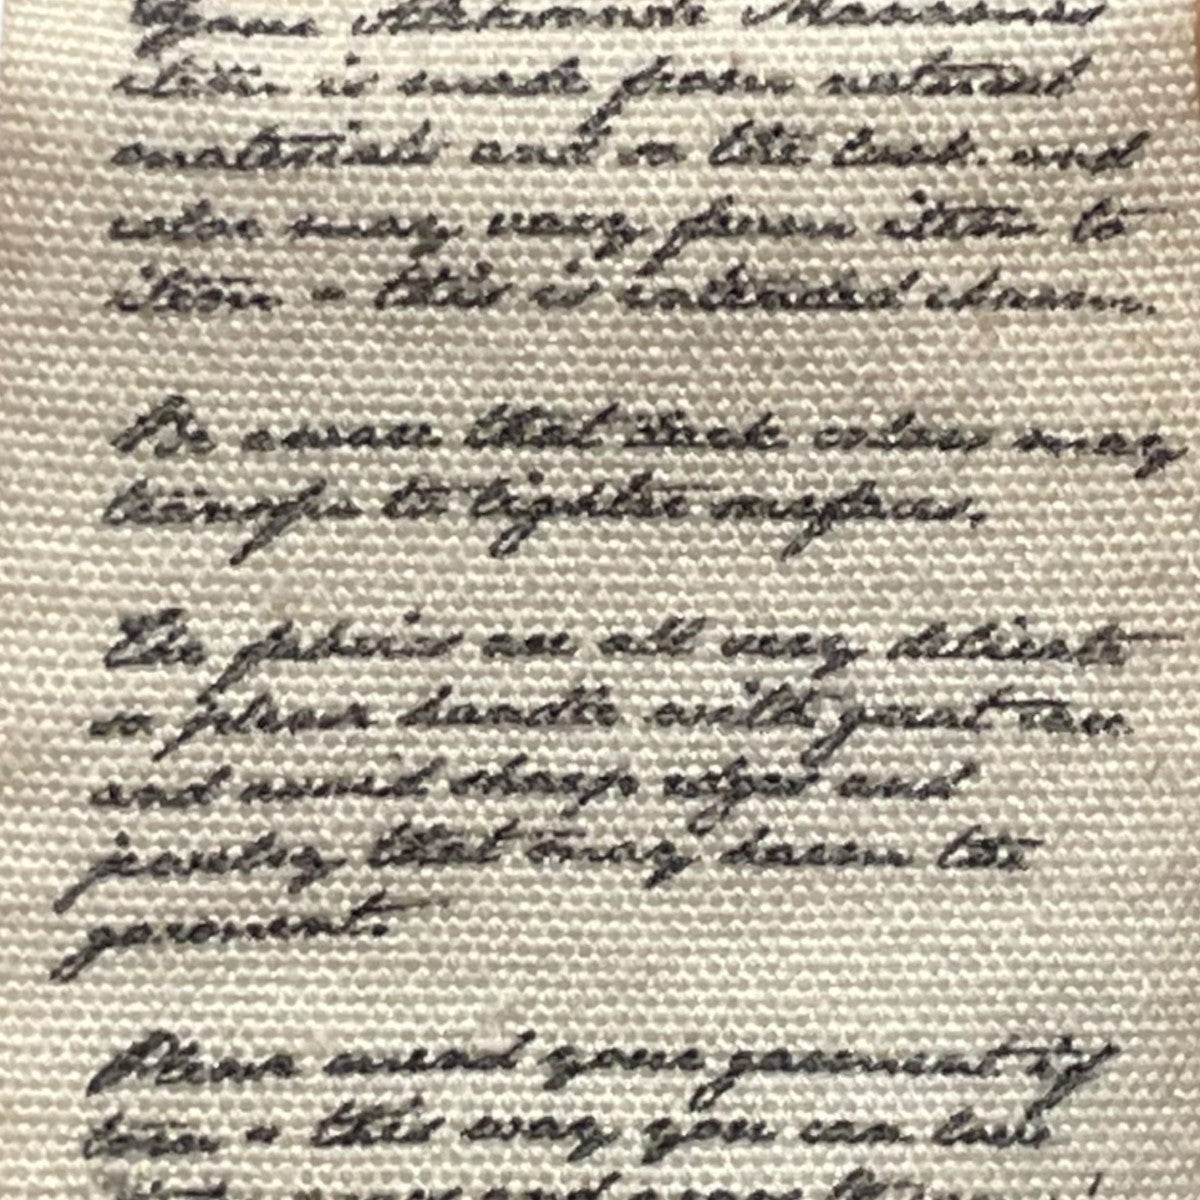 Your
item is made from natural
materials and so the look and
color may vary from item to
item - this is intended charm.
Be aware that dark colors may
transfer to lighter surfaces.
The fabrics are all very delicate
so please handle with great care
and avoid sharp edges and
jewelry that may harm the
garment.
Please mend your garment if
torn - this way you can love